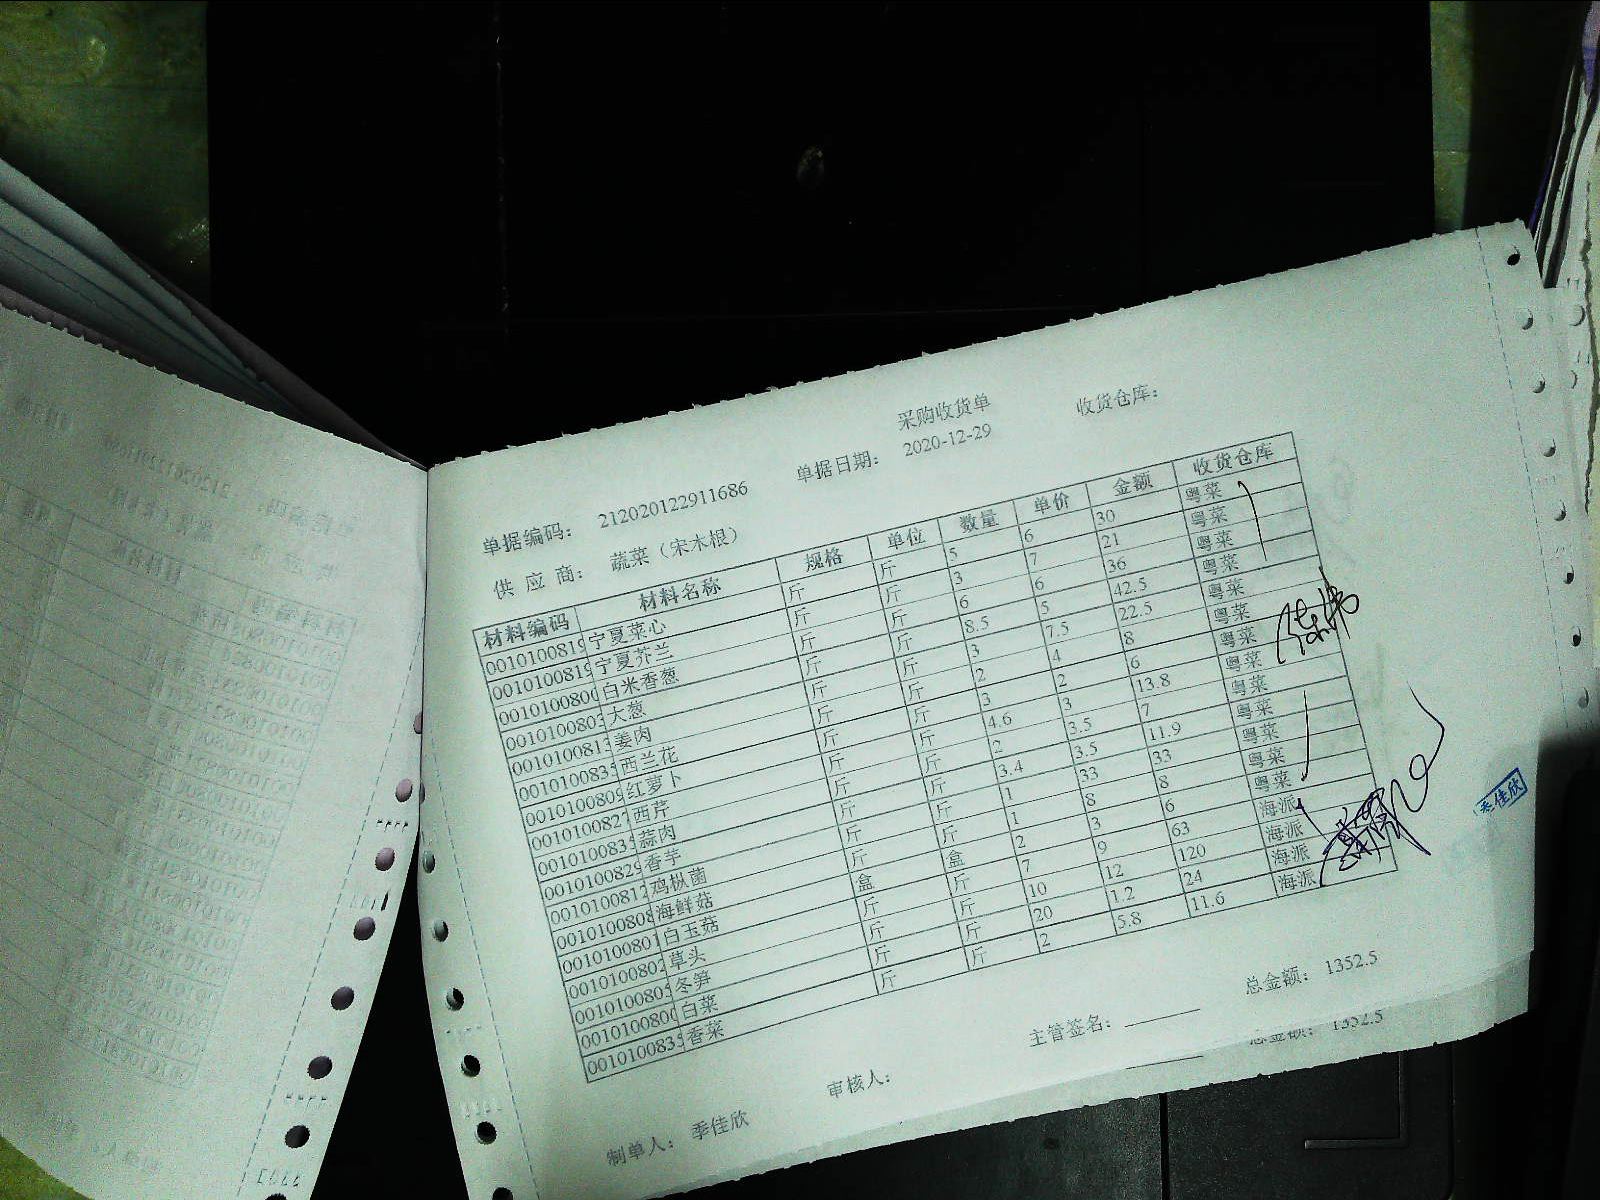 采购收货单
单据编码： 212020122911686 单据日期： 2020-12-29 收货仓库：
供 应 商： 蔬菜（宋木根）
材料编码 材料名称 规格 单位 数量 单价 金额 收货仓库
0010100819 宁夏菜心 斤 斤 5 6 30 粤菜
0010100819 宁夏芥兰 斤 斤 3 7 21 粤菜
001010080 白米香葱 斤 斤 6 6 36 粤菜
0010100803 大葱 斤 斤 8.5 5 42.5 粤菜
0010100813 姜肉 斤 斤 3 7.5 22.5 粤菜
0010100835 西兰花 斤 斤 2 4 8 粤菜
0010100809 红萝卜 斤 斤 3 2 6 粤菜
0010100827 西芹 斤 斤 4.6 3 13.8 粤菜
0010100835 蒜肉 斤 斤 2 3.5 7 粤菜
0010100829 香芋 斤 斤 3.4 3.5 11.9 粤菜
0010100812 鸡枞菌 斤 斤 1 33 33 粤菜
0010100808 海鲜菇 斤 斤 1 8 8 粤菜
0010100801 白玉菇 盒 盒 2 3 6 粤菜
0010100802 草头 斤 斤 7 9 63 海派
0010100805 冬笋 斤 斤 10 12 120 海派
001010080 白菜 斤 斤 20 1.2 24 海派
0010100835 香菜 斤 斤 2 5.8 11.6 海派
季佳欣
总金额： 1352.5
制单人： 季佳欣 审核人： 主管签名：
总金额： 1352.5